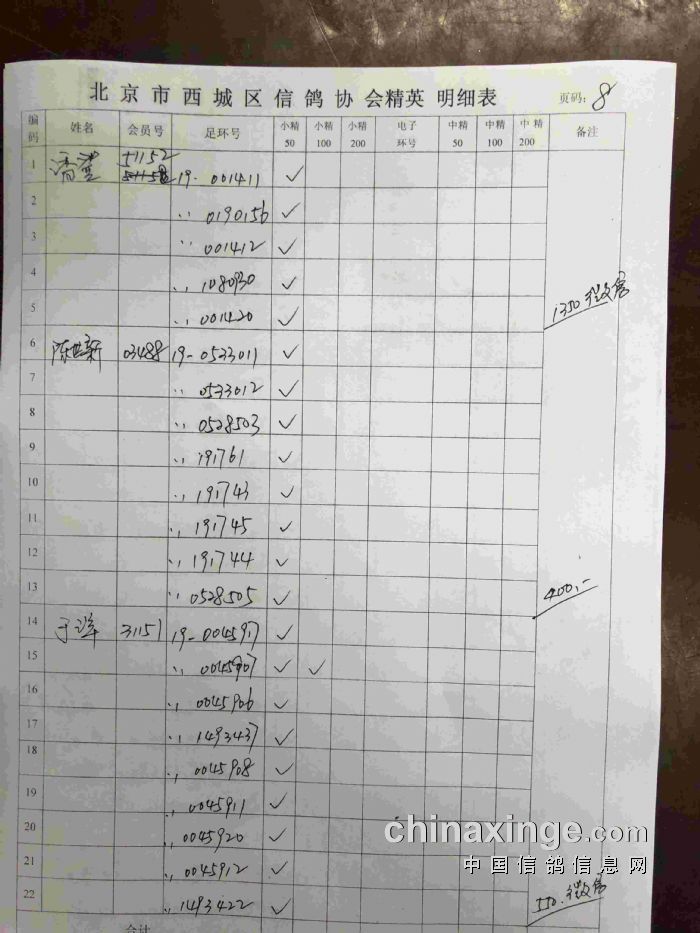 北京市西城区信鸽协会精英 明细表 页码: 8
编码 姓名 会员号 足环号 小精50 小精100 小精200 电子环号 中精50 中精100 中精200 备注
1 51152 19-001411 ✓
2 〃 0190156 ✓
3 〃 001412 ✓
4 〃 1080930 ✓
5 〃 001420 ✓ 1350 微信
6 陈世新 03488 19-0533011 ✓
7 〃 0533012 ✓
8 〃 0528503 ✓
9 〃 191761 ✓
10 〃 191743 ✓
11 〃 191745 ✓
12 〃 191744 ✓
13 〃 0528505 ✓ 400.-
14 于洋 31151 19-0045917 ✓
15 〃 0045907 ✓ ✓
16 〃 0045906 ✓
17 〃 1493437 ✓
18 〃 0045908 ✓
19 〃 0045911 ✓
20 〃 0045920 ✓
21 〃 0045912 ✓
22 〃 1493422 ✓ 550. 微信
合计
chinaxinge.com
中国信鸽信息网